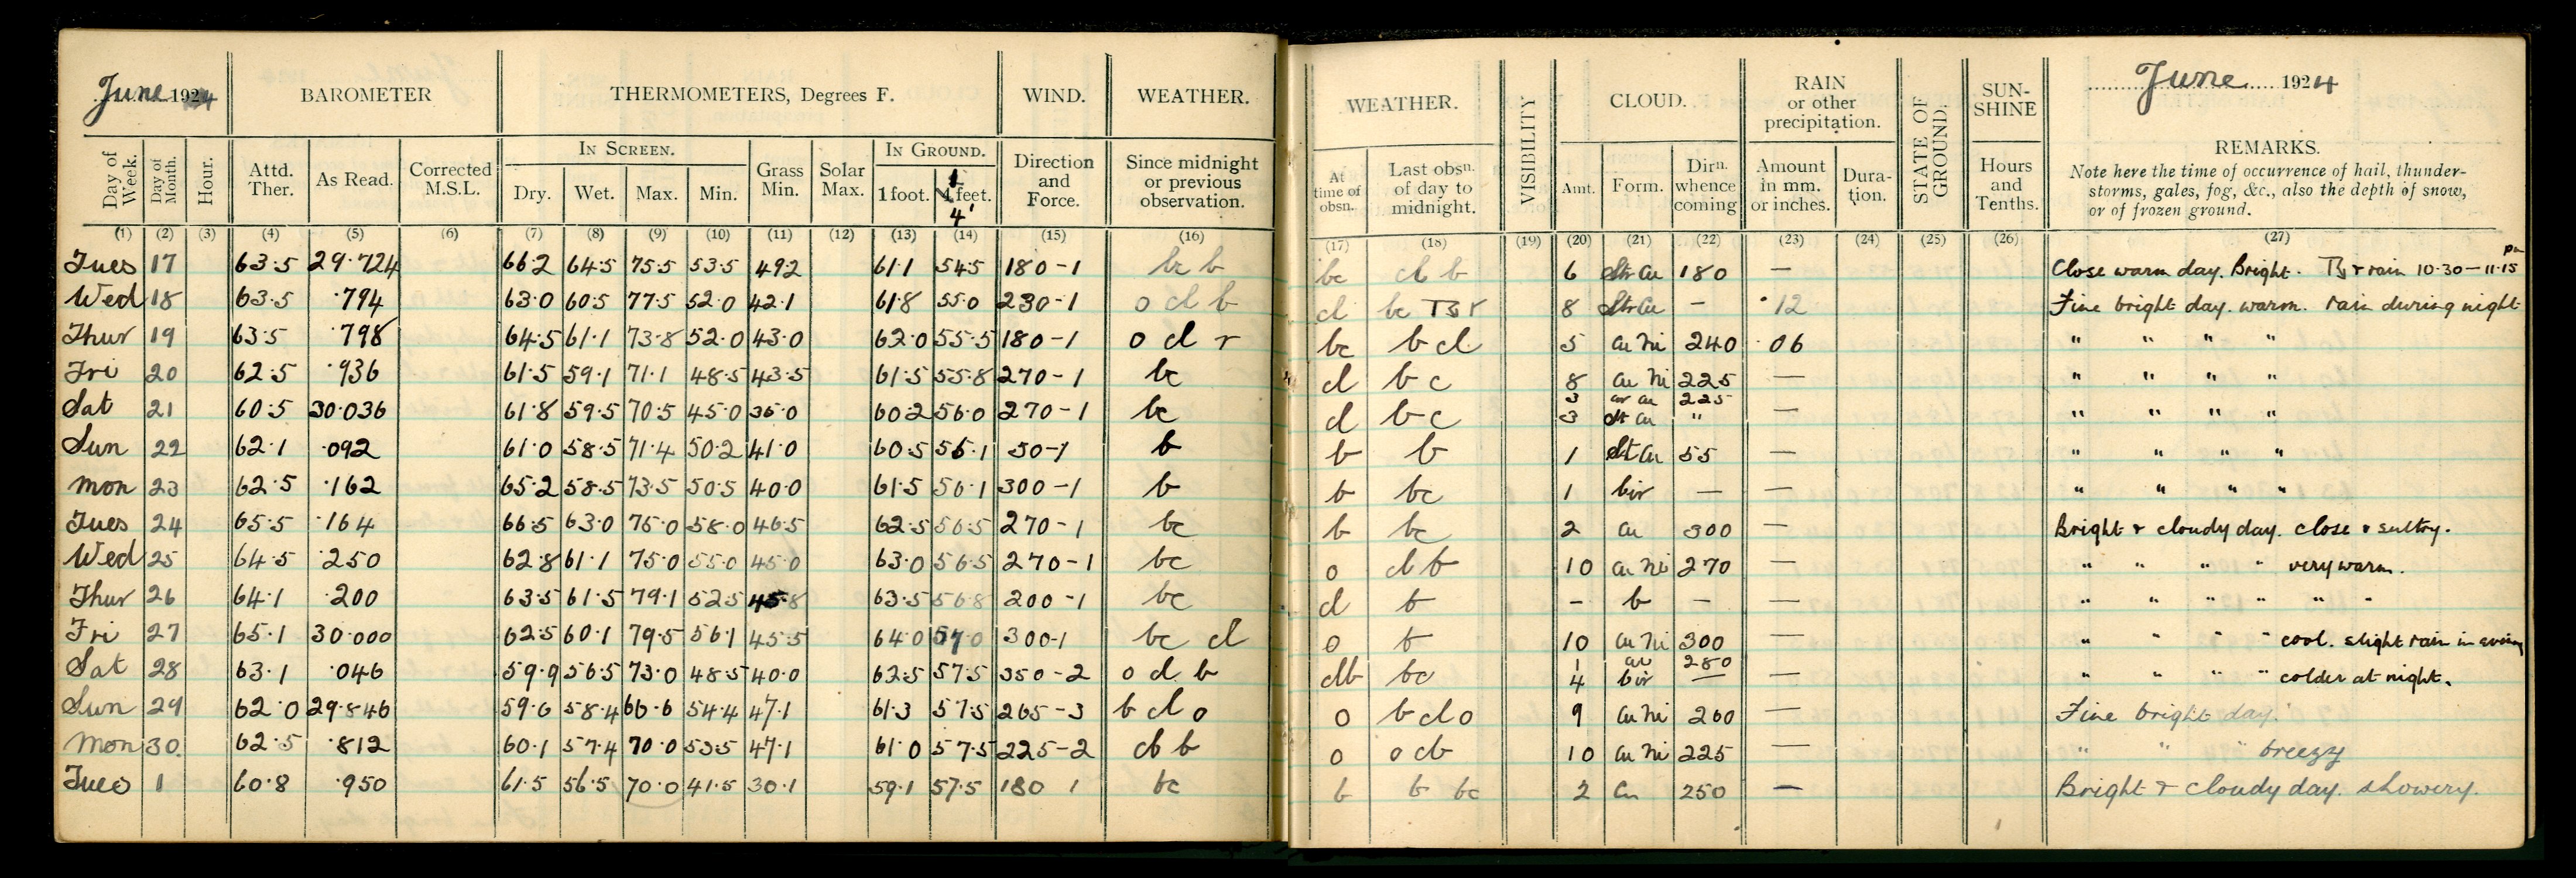 June 1924
BAROMETER THERMOMETERS, Degrees F. WIND. WEATHER.
Day of Week. Day of Month. Hour. Attd. Ther. As Read. Corrected M.S.L. IN SCREEN. Dry. Wet. Max. Min. Grass Min. Solar Max. IN GROUND. 1 foot. 4 feet. 4' Direction and Force. Since midnight or previous observation.
(1) (2) (3) (4) (5) (6) (7) (8) (9) (10) (11) (12) (13) (14) (15) (16)
Tues 17 63.5 29.724 66.2 64.5 75.5 53.5 49.2 61.1 54.5 180-1 bc b
Wed 18 63.5 .794 63.0 60.5 77.5 52.0 42.1 61.8 55.0 230-1 o cl b
Thur 19 63.5 .798 64.5 61.1 73.8 52.0 43.0 62.0 55.5 180-1 o cl r
Fri 20 62.5 .936 61.5 59.1 71.1 48.5 43.5 61.5 55.8 270-1 bc
Sat 21 60.5 30.036 61.8 59.5 70.5 45.0 36.0 60.2 56.0 270-1 bc
Sun 22 62.1 .092 61.0 58.5 71.4 50.2 41.0 60.5 56.1 50-1 b
Mon 23 62.5 .162 65.2 58.5 73.5 50.5 40.0 61.5 56.1 300-1 b
Tues 24 65.5 .164 66.5 63.0 76.0 58.0 46.5 62.5 56.5 270-1 bc
Wed 25 64.5 .250 62.8 61.1 75.0 55.0 45.0 63.0 56.5 270-1 bc
Thur 26 64.1 .200 63.5 61.5 79.1 52.5 45.8 63.5 56.8 200-1 bc
Fri 27 65.1 30.000 62.5 60.1 79.5 56.1 45.5 64.0 57.0 300-1 bc cl
Sat 28 63.1 .046 59.9 56.5 73.0 48.5 40.0 62.5 57.5 350-2 o cl b
Sun 29 62.0 29.846 59.6 58.4 66.6 54.4 47.1 61.3 57.5 265-3 b cl o
Mon 30 62.5 .812 60.1 57.4 70.0 53.5 47.1 61.0 57.5 225-2 cb b
Tues 1 60.8 .950 61.5 56.5 70.0 41.5 30.1 59.1 57.5 180 1 bc
June 1924
WEATHER. VISIBILITY CLOUD. RAIN or other precipitation. STATE OF GROUND. SUN-SHINE REMARKS.
At time of obsn. Last obsn. of day to midnight. Amt. Form. Dirn. whence coming Amount in mm. or inches. Dura-tion. Hours and Tenths. Note here the time of occurrence of hail, thunder-storms, gales, fog, &c., also the depth of snow, or of frozen ground.
(17) (18) (19) (20) (21) (22) (23) (24) (25) (26) (27)
bc cl b 6 Str Cu 180 — Close warm day. Bright. & rain 10.30-11.15 pm
cl bc r 8 Str Cu - .12 Fine bright day. warm. rain during night
bc b cl 5 Cu Ni 240 .06 " " " "
cl b c 8 Cu Ni 225 — " " " "
3 Cu 225
cl b c 3 St Cu " — " " " "
b b 1 St Cu 55 — " " " "
b bc 1 Cir — — " " " "
b bc 2 Cu 300 — Bright & cloudy day. close & sultry.
o cb b 10 Cu Ni 270 — " " " " very warm.
cl b - b - — " " " " " "
o b 10 Cu Ni 300 — " " " " cool. slight rain in evening
1 Cu 280
clb bc 4 Cir — — " " " " colder at night.
o b cl o 9 Cu Ni 260 — Fine bright day.
o o cb 10 Cu Ni 225 — " " " breezy
b b bc 2 Cu 250 — Bright & cloudy day. showery.